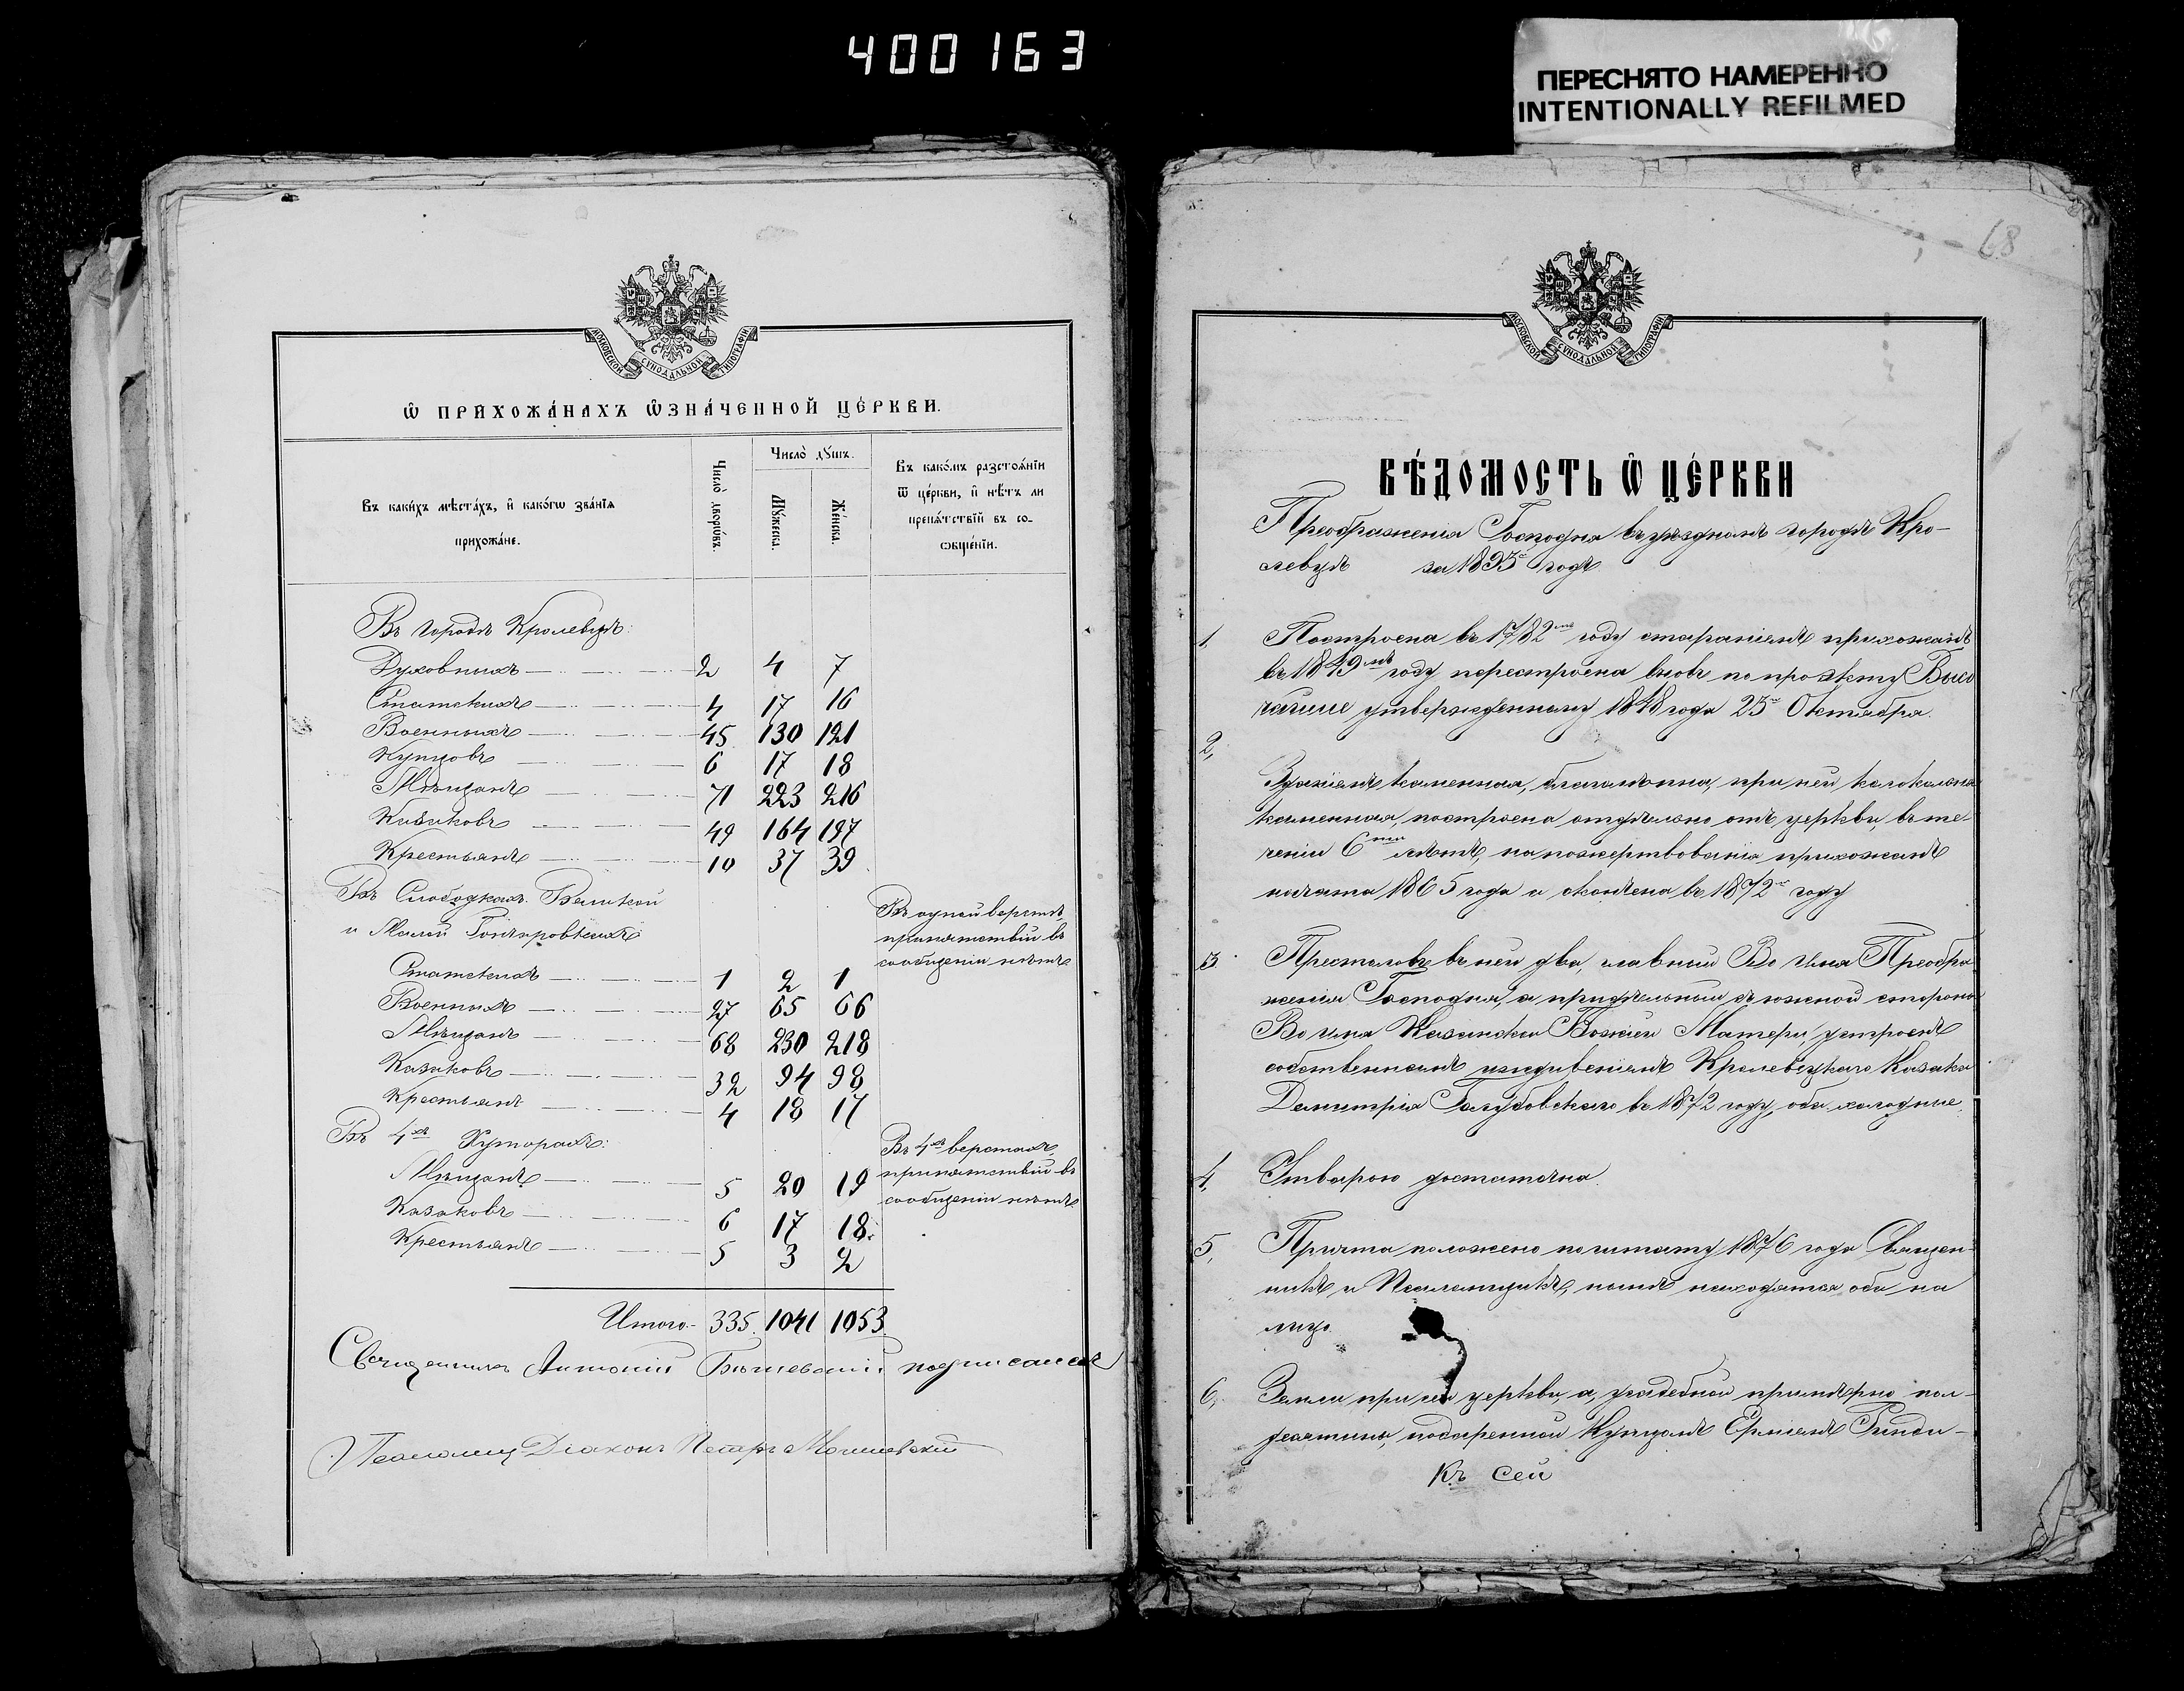 400163
ПЕРЕСНЯТО НАМЕРЕННО
INTENTIONALLY REFILMED
МОСКОВСКОЙ СѴНОДАЛЬНОЙ ТИПОГРАФІИ
Ѽ ПРИХОЖА́НАХЪ Ѿ́ЗНА́ЧЕННОЙ ЦЕ́РКВИ.
Въ каки́хъ мѣста́хъ, и҆ како́гѡ зва́нїѧ
прихожа́не.
Число̀ дворѡ́въ.
Число̀ дꙋ́шъ.
Мꙋ́жеска.
Же́нска.
Въ како́мъ разстоѧ́нїи
ѿ це́ркви, и҆ нѣ́тъ ли
препѧ́тствїй въ со-
ѻбще́нїи.
Въ городѣ Кролевцѣ:
Духовныхъ 2 4 7
Статскихъ 4 17 16
Военныхъ 45 130 121
Купцовъ 6 17 18
Мѣщанъ 71 223 216
Казаковъ 49 164 197
Крестьянъ 10 37 39
Въ Слободкахъ Великой
и Малой
Въ одной верстѣ,
припятствій въ
сообщеніи нѣтъ
Статскихъ 1 2 1
Военныхъ 27 65 66
Мѣщанъ 68 230 218
Казаковъ 32 94 98
Крестьянъ 4 18 17
Въ 4хъ Хуторахъ:
Въ 4хъ верстахъ,
припятствій въ
сообщеніи нѣтъ
Мѣщанъ 5 20 19
Казаковъ 6 17 18
Крестьянъ 5 3 2
Итого 335 1041 1053
Священникъ Антоній подписался
Псаломщ Діаконъ Петръ
68
МОСКОВСКОЙ СѴНОДАЛЬНОЙ ТИПОГРАФІИ
ВѢ́ДОМОСТЬ Ѽ ЦЕ́РКВИ
Преображенія Господня въ уѣздномъ городѣ Кро-
левцѣ за 1893й годъ
1, Построена въ 1782мъ году стараніемъ прихожанъ
въ 1849мъ году перестроена вновь по проэкту Высо
чайше утвержденному 1848 года 25го Октября.
2,
Зданіемъ каменная, благолѣпна, при ней колокольня
каменная, построена отдѣльно отъ церкви, въ те-
ченіи 6ти лѣтъ, на пожертвованія прихожанъ
начата 1865 года и окончена въ 1872м году
3. Престоловъ въ ней два, главный Во имя Преобра
женія Господня, а придѣльный съ южной стороны
Во имя Казанской Божіей Матери, устроенъ
собственнымъ иждивеніемъ Кролевецкаго Казака
Димитрія Голубовскаго въ 1872 году, оба холодные.
4, Утварью достаточна.
5, Причта положено по штату 1876 года Священ-
никъ и Псаломщикъ, нынѣ находятся оба на
лицо.
6, Земли при сей церкви, а, усадебной примѣрно пол-
десятины, подаренной Купцомъ
Къ сей